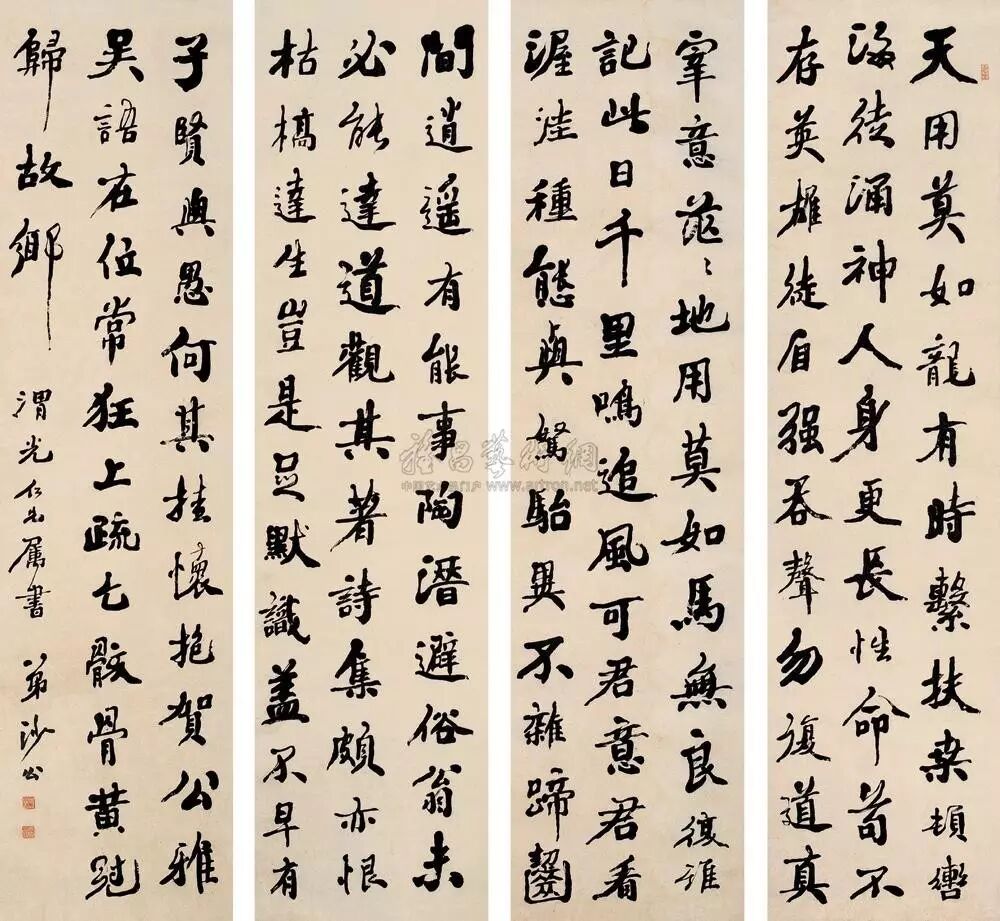 天用莫如龍有時繫扶桒頓轡
海徒涌神人身更長性命苟不
存英雄徒自强吞聲勿復道真
宰意茫〻地用莫如馬無良復誰
記此日千里鳴追風可君意君看
渥洼種態與駑駘異不雜蹄齧
間逍遥有能事陶潛避俗翁未
必能達道觀其著詩集頗亦恨
枯槁達生豈是足默識盖不早有
子賢與愚何其挂懷抱賀公雅
吴語在位常狂上疏乞骸骨黄冠
歸故鄉
渭光仁兄属書 弟
雅昌藝術網
www.artron.net